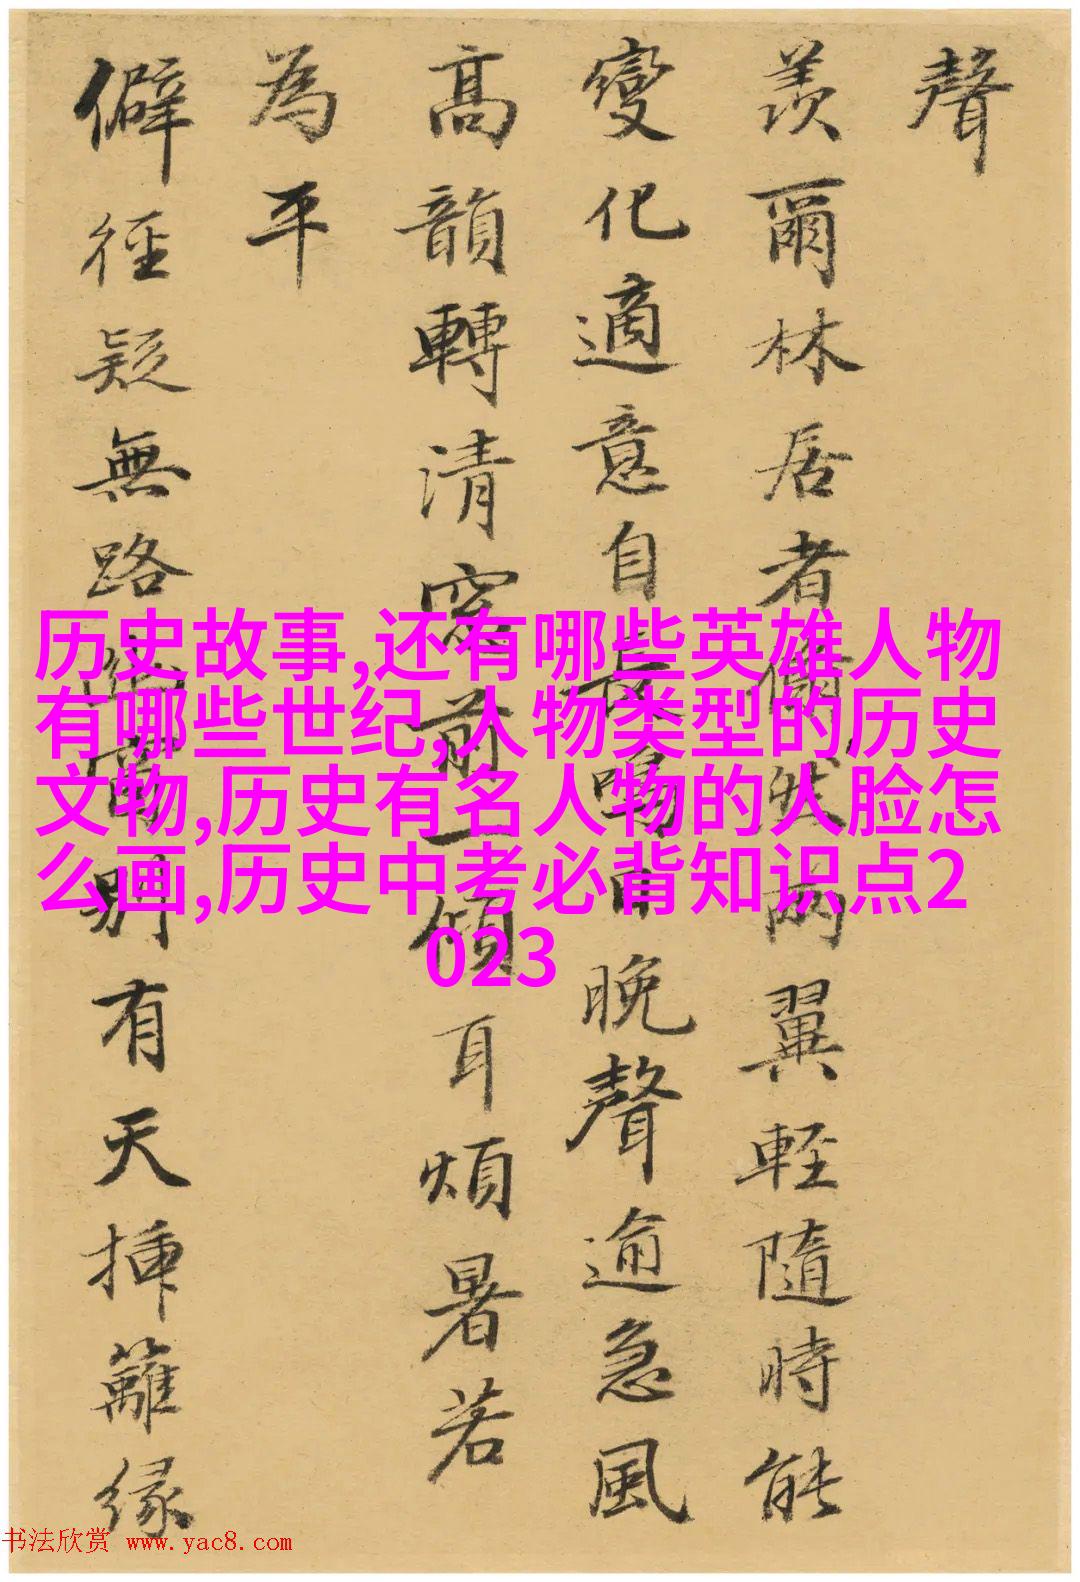 聲
羡爾林居者翛然兩翼輕隨時能
變化適意自長鳴日晚聲逾急風
高韻轉清窓前一傾耳煩暑若
為平
僻徑疑無路
別有天揷籬緣
历史故事,还有哪些英雄人物
有哪些世纪,人物类型的历史
文物,历史有名人物的人脸怎
么画,历史中考必背知识点2
023
书法欣赏 www.yac8.com